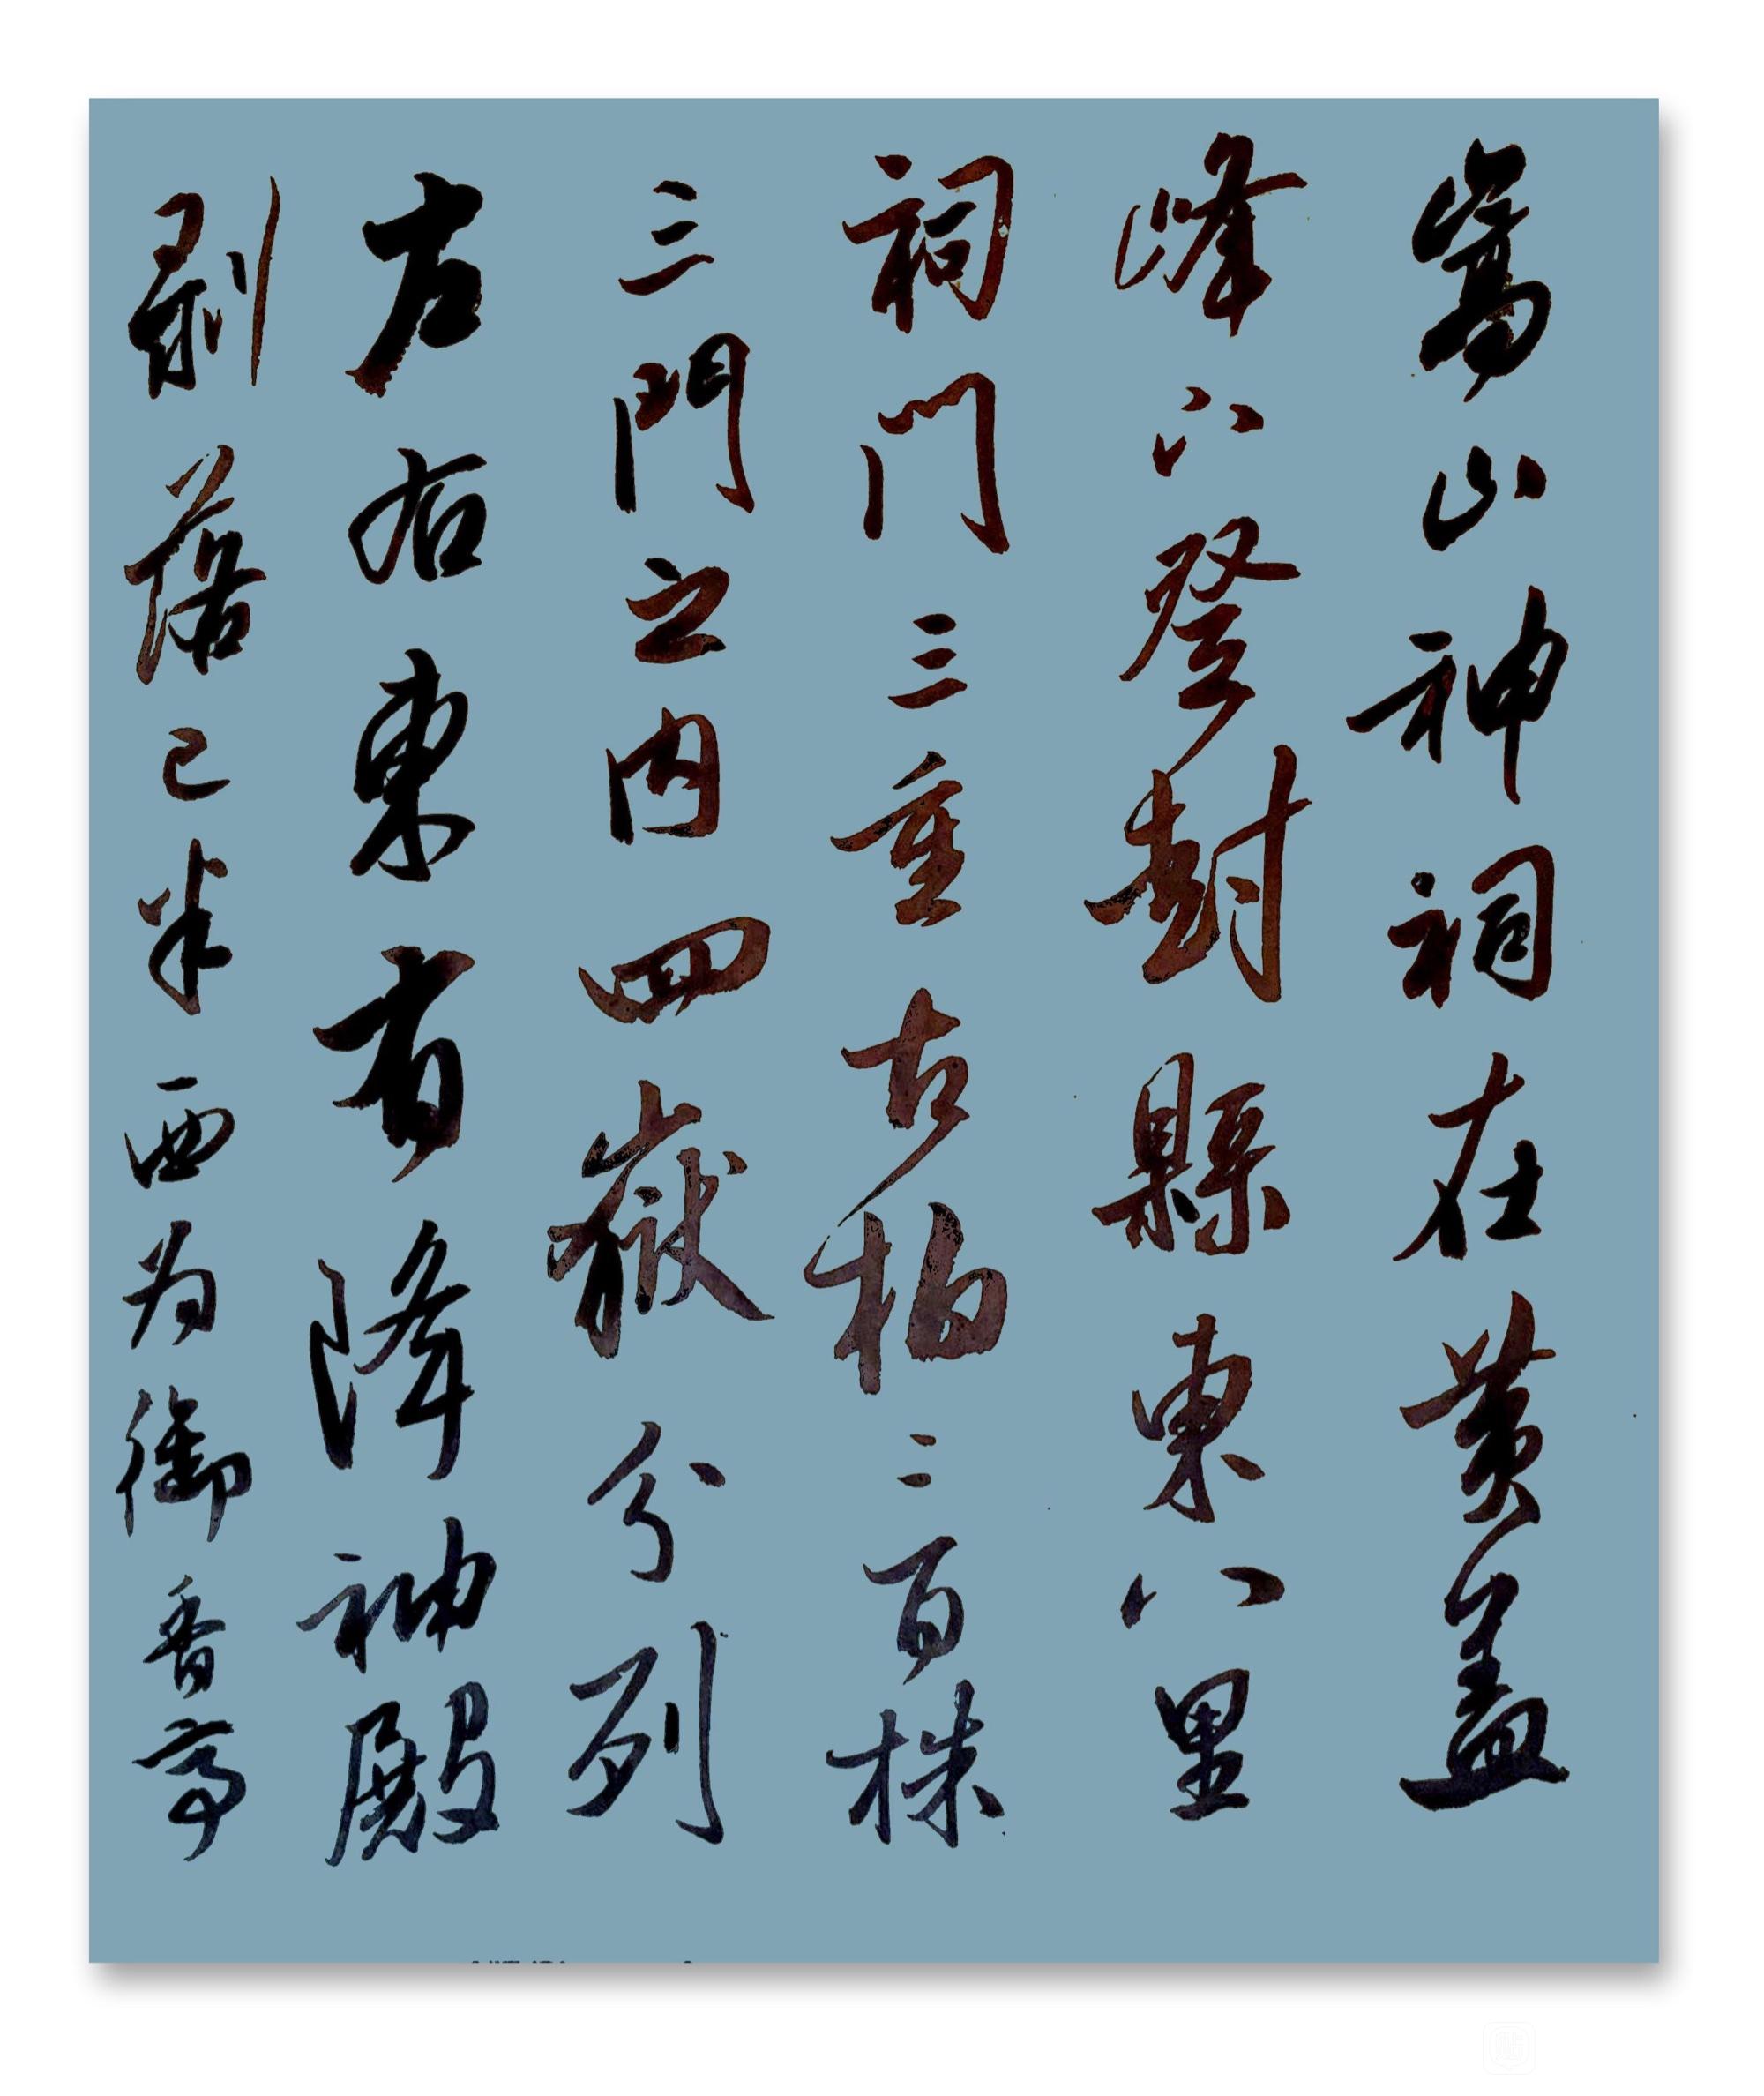 嵩山神祠在黄盖
峰下登封縣東八里
祠门三重古柏二百株
三門之内四嶽分列
左右東有降神殿
剥落已半西为御香亭